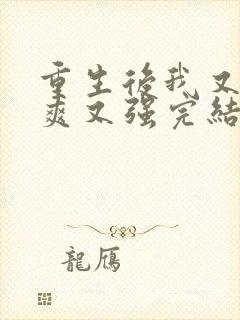 重生後我又
爽又强完結
龍鴈